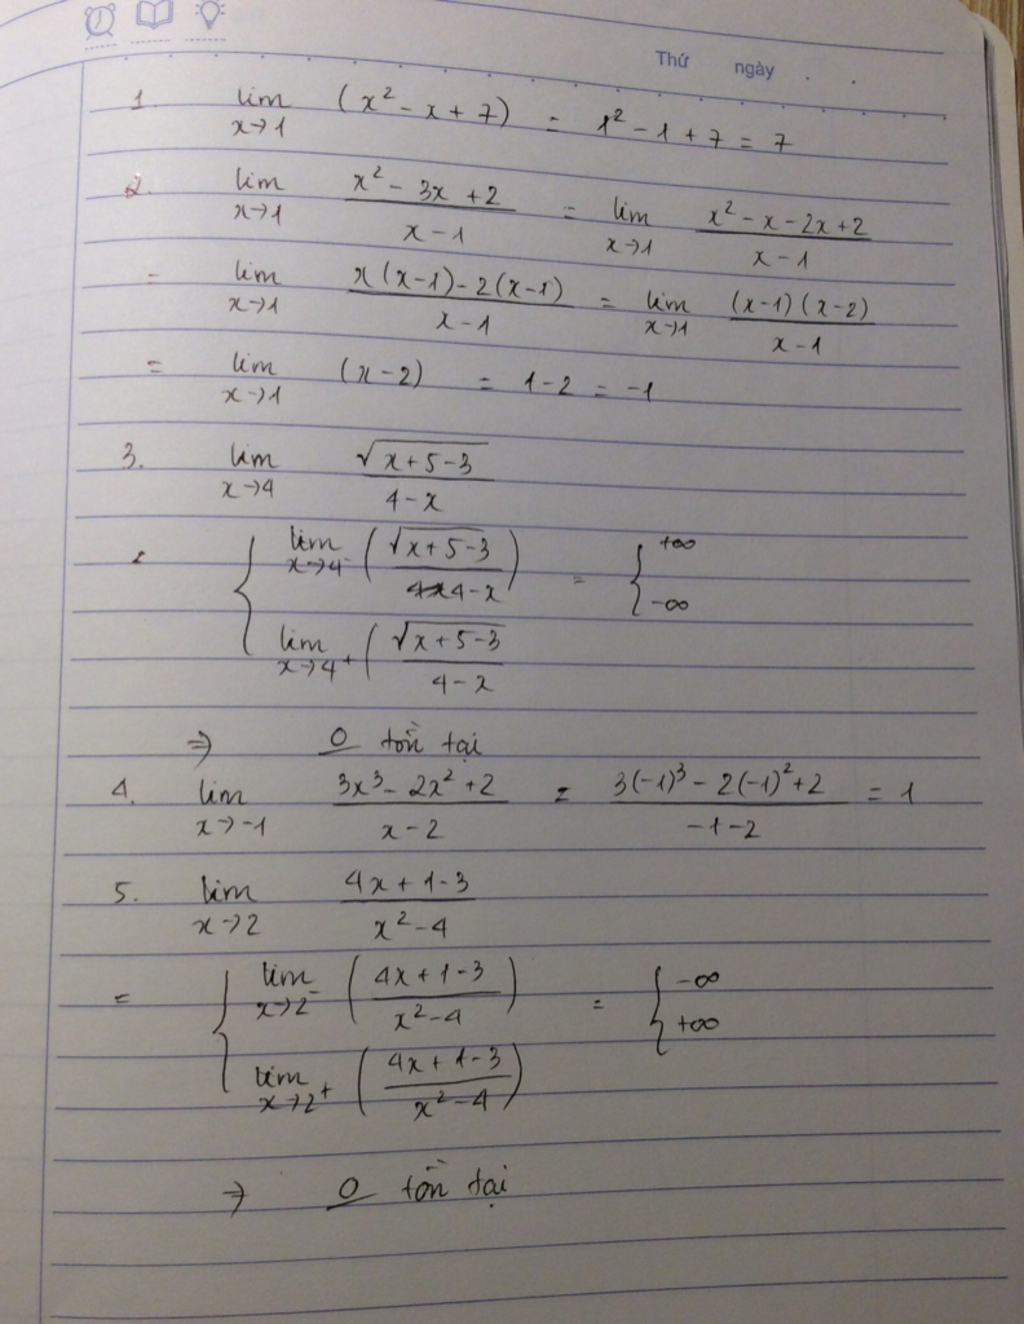 Thứ ngày . .
1. lim x→1 (x² - x + 7) = 1² - 1 + 7 = 7
2. lim x→1 (x² - 3x + 2)/(x - 1) = lim x→1 (x² - x - 2x + 2)/(x - 1)
= lim x→1 (x(x-1) - 2(x-1))/(x - 1) = lim x→1 ((x-1)(x-2))/(x - 1)
= lim x→1 (x - 2) = 1 - 2 = -1
3. lim x→4 √(x+5-3)/(4 - x)
= { lim x→4⁻ (√(x+5-3)/(4-x)) = { +∞
-∞
lim x→4⁺ (√(x+5-3)/(4-x)
⇒ O tồn tại
4. lim x→-1 (3x³ - 2x² + 2)/(x - 2) = (3(-1)³ - 2(-1)² + 2)/(-1-2) = 1
5. lim x→2 (4x + 1 - 3)/(x² - 4)
= { lim x→2⁻ ((4x + 1 - 3)/(x² - 4)) = { -∞
+∞
lim x→2⁺ ((4x + 1 - 3)/(x² - 4))
⇒ O tồn tại